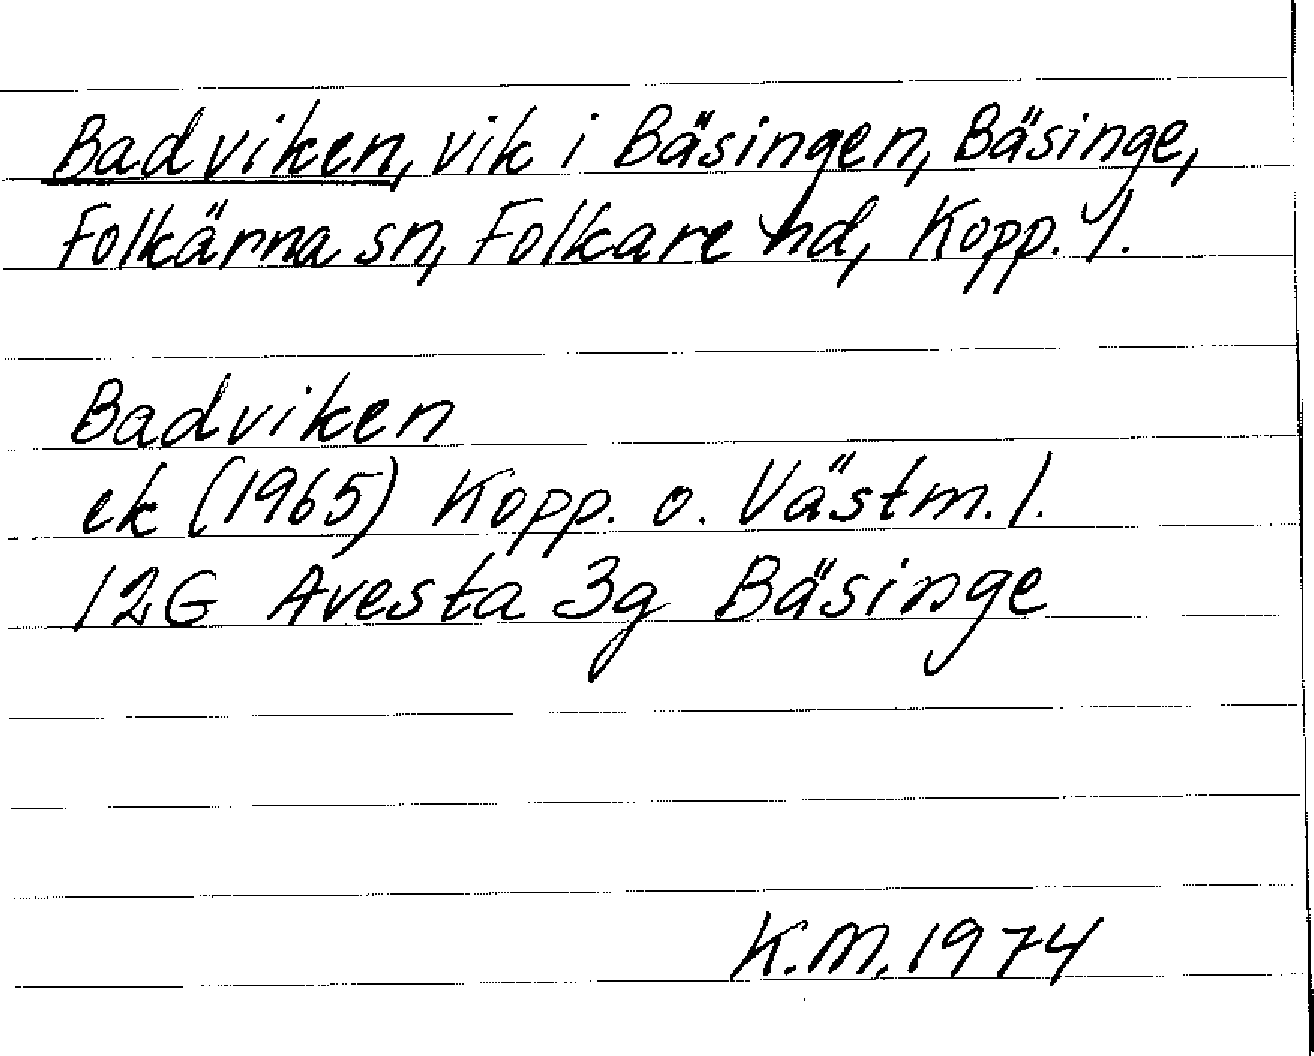 Badviken, vik i Bäsingen, Bäsinge,
Folkärna sn, Folkare hd, Kopp. l.
Badviken
ek (1965) Kopp. o. Västm. l.
12G Avesta 3g Bäsinge
K.M. 1974